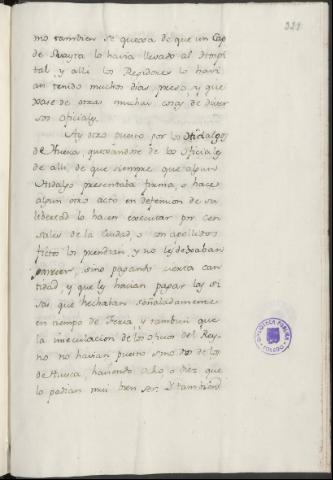 329.
mo tambien se quexa de que un Cap
de Guayta lo havia llevado al Hospi
tal y alli los Regidores lo havi
an tenido muchos dias preso, y que
pase de otras muchas cosas de diver
sos oficiales.
Ay otro puesto por los Hidalgos
de Huesca, quexandose de los Oficiales
de alli, de que siempre que algun
Hidalgo presentaba firma, o hace
algun otro acto en defension de su
libertad lo hacen executar por cen
sales de la Ciudad, o con apellidos
fictos los prendian, y no les dexaban
parecer, sino pagando cierta can
tidad, y que les hacian pagar las si
sas, que hechaban señaladamente
en tiempo de Feria, y tambien que
la inseculacion de los oficios del Rey
no no havian puesto sino dos de los
de Huesca, haviendo ocho, o diez que
lo podian mui bien ser, Y tambien
BIBLIOTECA PUBLICA
TOLEDO